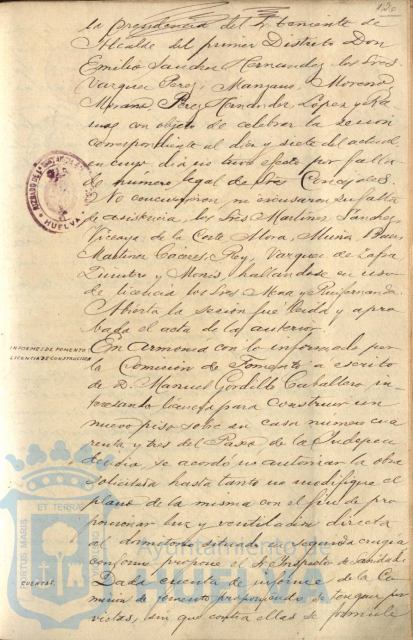 126
la presidencia del Sr. Teniente de
Alcalde del primer Distrito Don
Emilio Sanchez Hernandez los Sres
Vazquez Perez, Manzano, Moreno
Perez, Hernandez Lopez y
con objeto de celebrar la sesión
correspondiente al dia y siete del actual
en cuyo dia no tuvo efecto por falta
de número legal de Sres Concejales.
No concurrieron, ni excusaron su falta
de asistencia, los Sres Martinez Sanchez
de la Corte Mora, Muñiz
Martinez Rey, Vazquez de Zapa
Quintero y Monis, hallandose en uso
de licencia los Sres Mora y
Abierta la sesión fué leida y apro
bada el acta de la anterior.
INFORMES DE FOMENTO
LICENCIA DE CONSTRUCCION
En armonía con lo informado por
la Comision de Fomento a escrito
de D. Manuel Gordillo Caballero in
teresando licencia para construir un
nuevo piso sobre su casa numero cua
renta y tres del Paseo de la Indepen
dencia, se acordó no autorizar la obra
solicitada hasta tanto no modifique el
plano de la misma con el fin de pro
porcionar luz y ventilacion directa
al dormitorio situado en segunda crugia
conforme propone el Sr Inspector de Sanidad.
CUENTAS.
Dada cuenta de informe de la Co
mision de fomento proponiendo se
sin que contra ellas se formule
HUELVA
PORTUS MARIS ET TERRAE
Ayuntamiento de